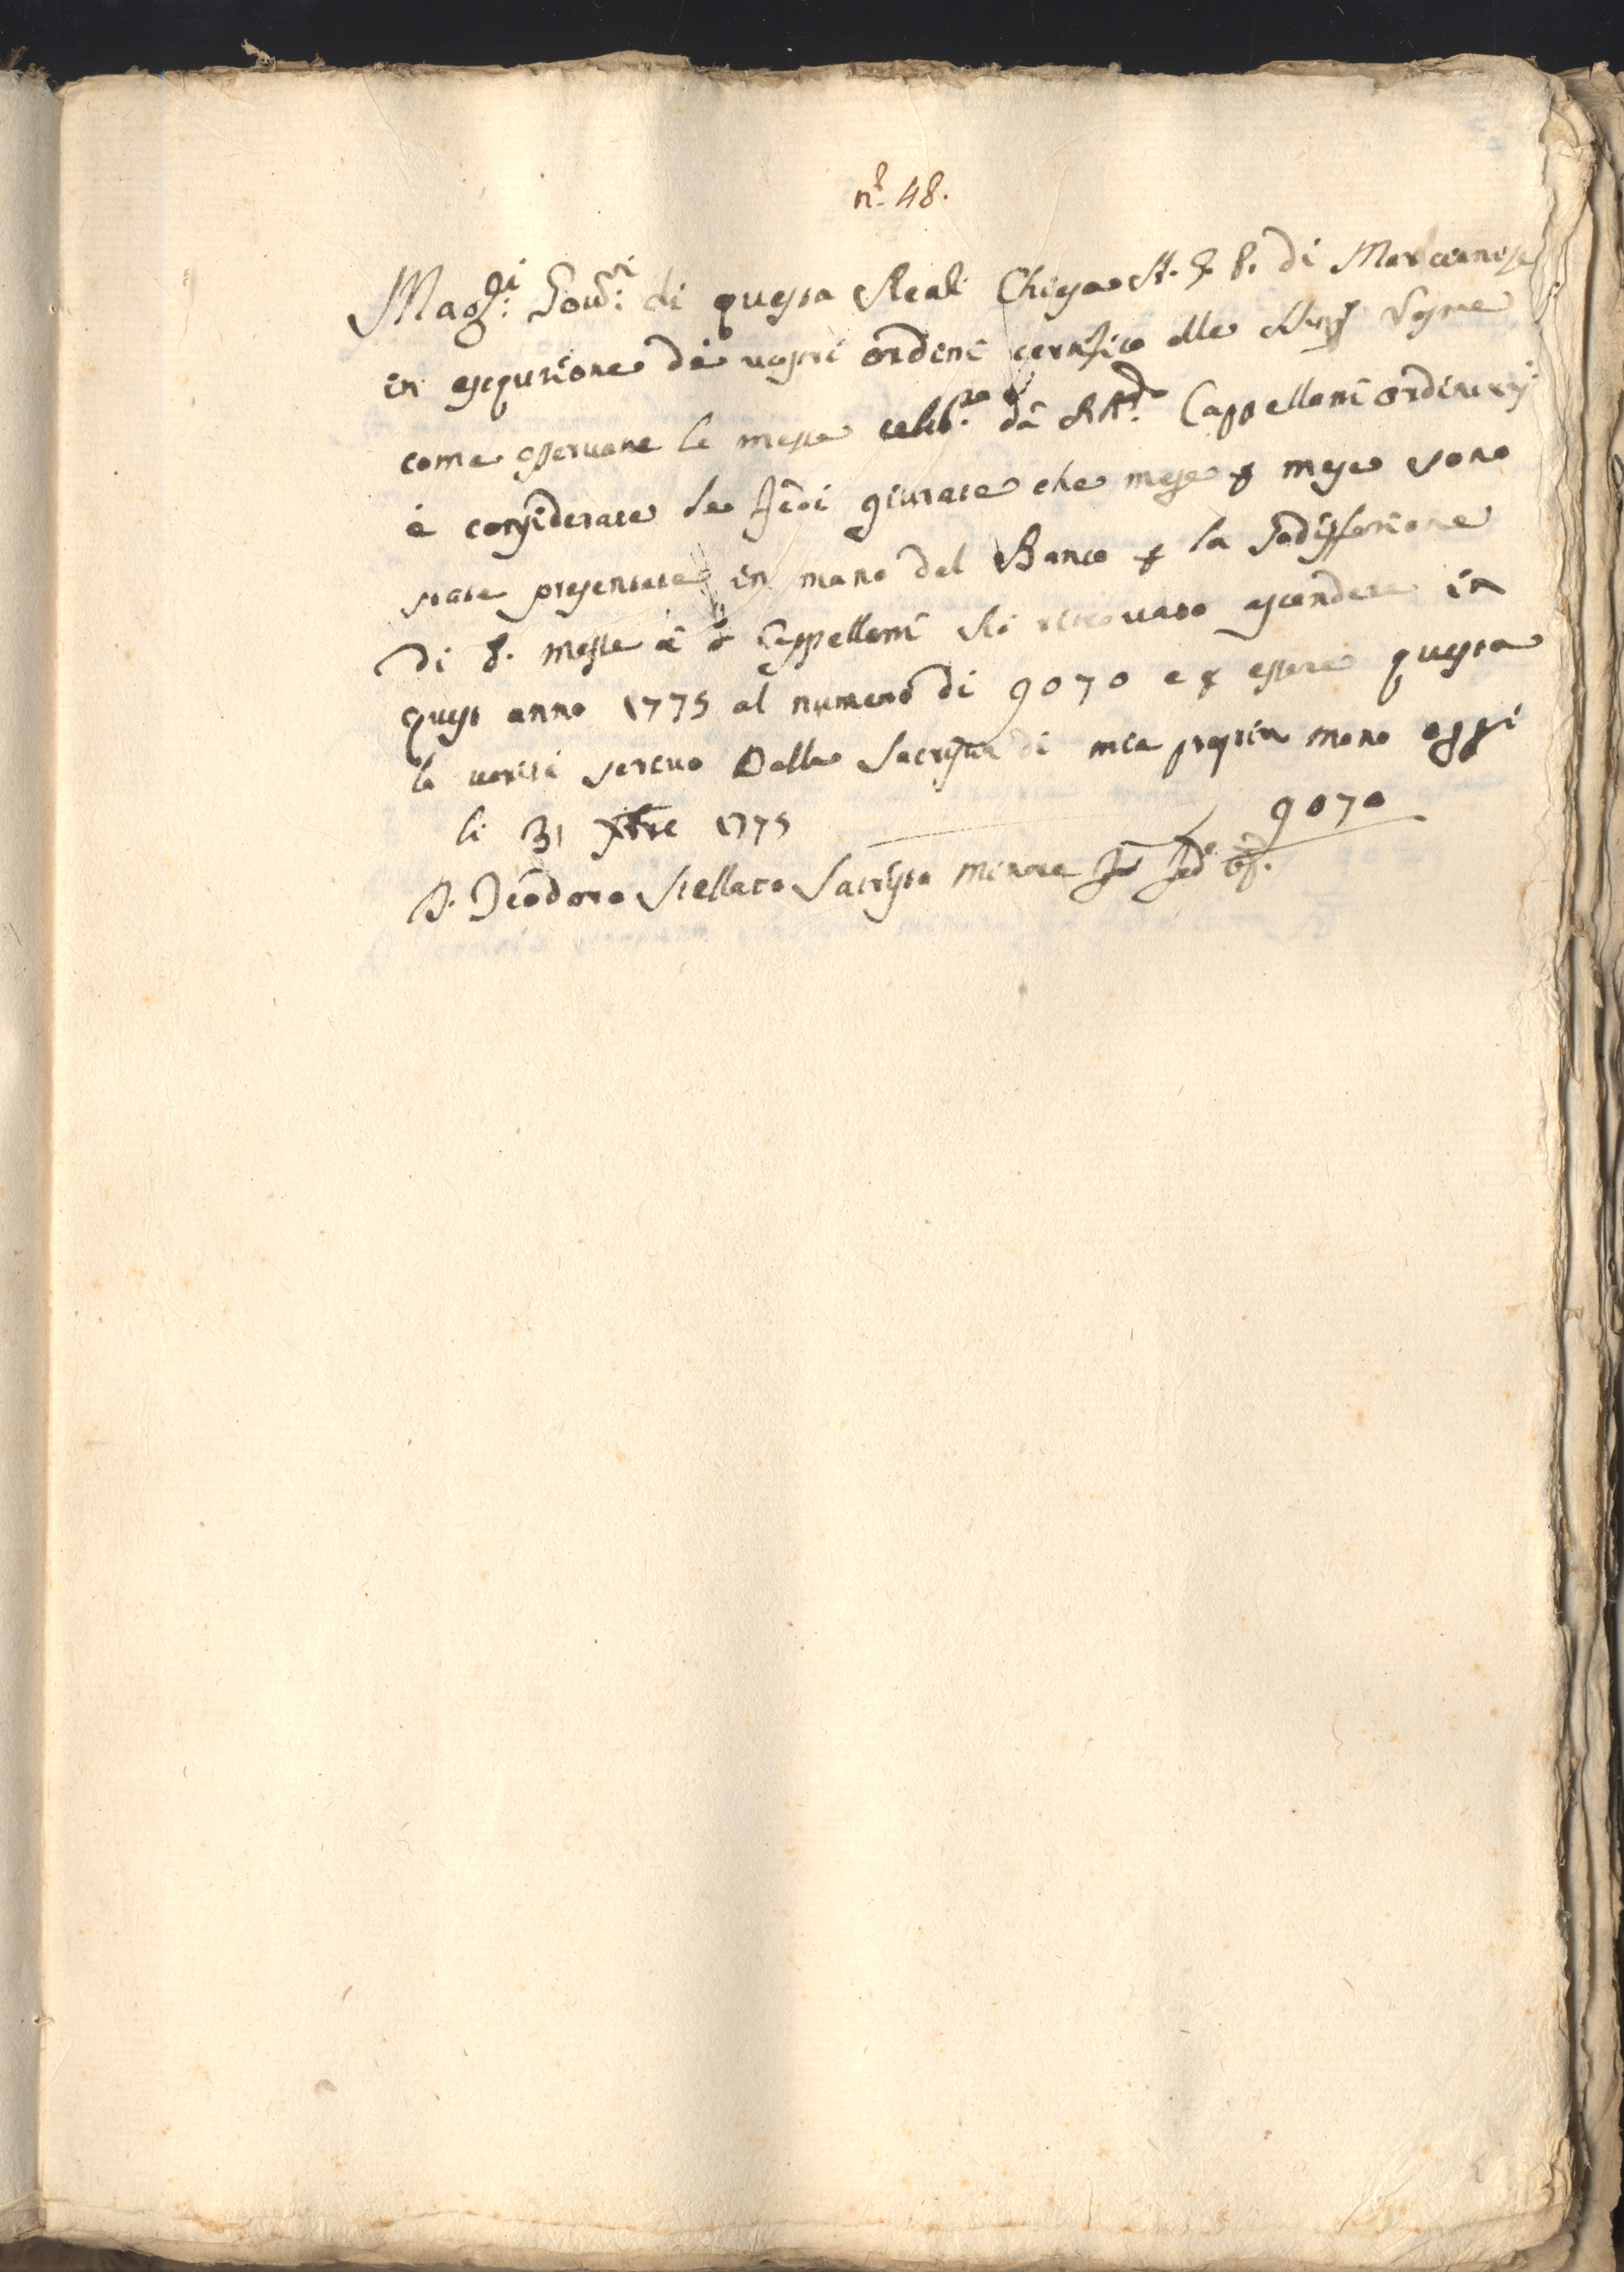 n.° 48.
Mag.ci Gov.ri di questa Real Chiesa A. G. P. di Marcianise
in esequzione de vostri ordini certifico alle Sig.e
come osservane le messe celeb.te da RR.di Cappellani ordinarij
e considerate le fedi giurate che mese p mese sono
state presentate in mano del Banco p la sodisfazione
di d. messe a d Cappellani si ritrovano ascendere in
quest anno 1775 al numero di 9070 e p essere questa
la verità scrivo Dalla Sacristia di mia propria mano oggi
li 31 Xbre 1775
9070
D. Teodoro Stellato Sacrista Minore